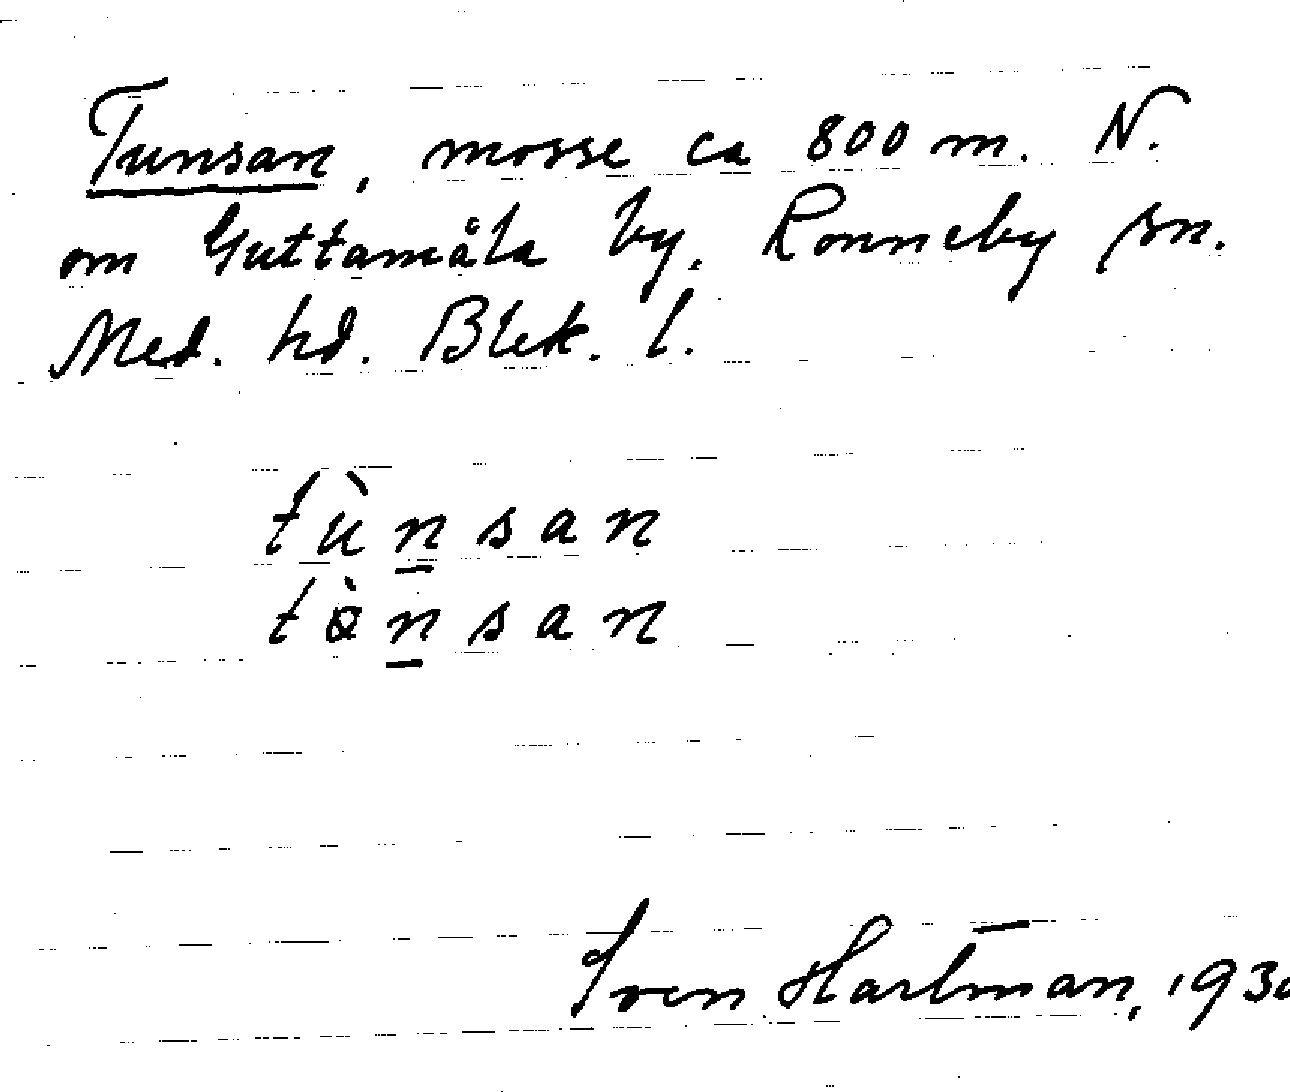 Tunsan, mosse ca 800 m. N.
om Guttamåla by. Ronneby sn.
Med. hd. Blek. l.
tùn̲san
tò̲n̲san
Sven Hartman, 193